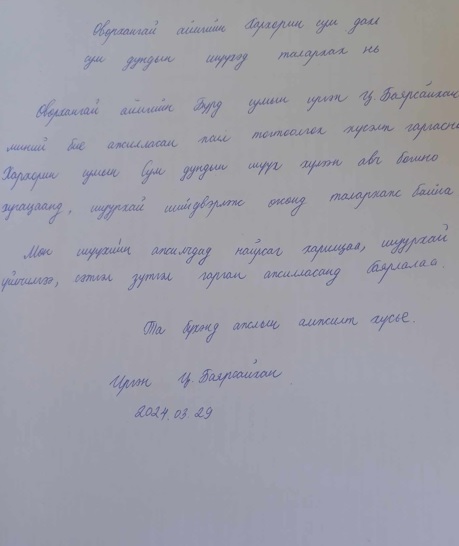 Өвөрхангай аймгийн Хархорин сум дахь
сум дундын шүүхэд талархах нь
Өвөрхангай аймгийн Бүрд сумын иргэн Ц.Баярсайхан
миний бие ажилласан жил тогтоолгох хүсэлт гаргасны
Хархорин сумын Сум дундын шүүх хүлээн авч богино
хугацаанд, шуурхай шийдвэрлэж өгсөнд талархаж байна
Мөн шүүхийн ажилчдад найрсаг харилцаа, шуурхай
үйлчилгээ, зүтгэл гарган ажилласанд баярлалаа.
Та бүхэнд ажлын амжилт хүсье.
Иргэн Ц.Баярсайхан
2024.03.29